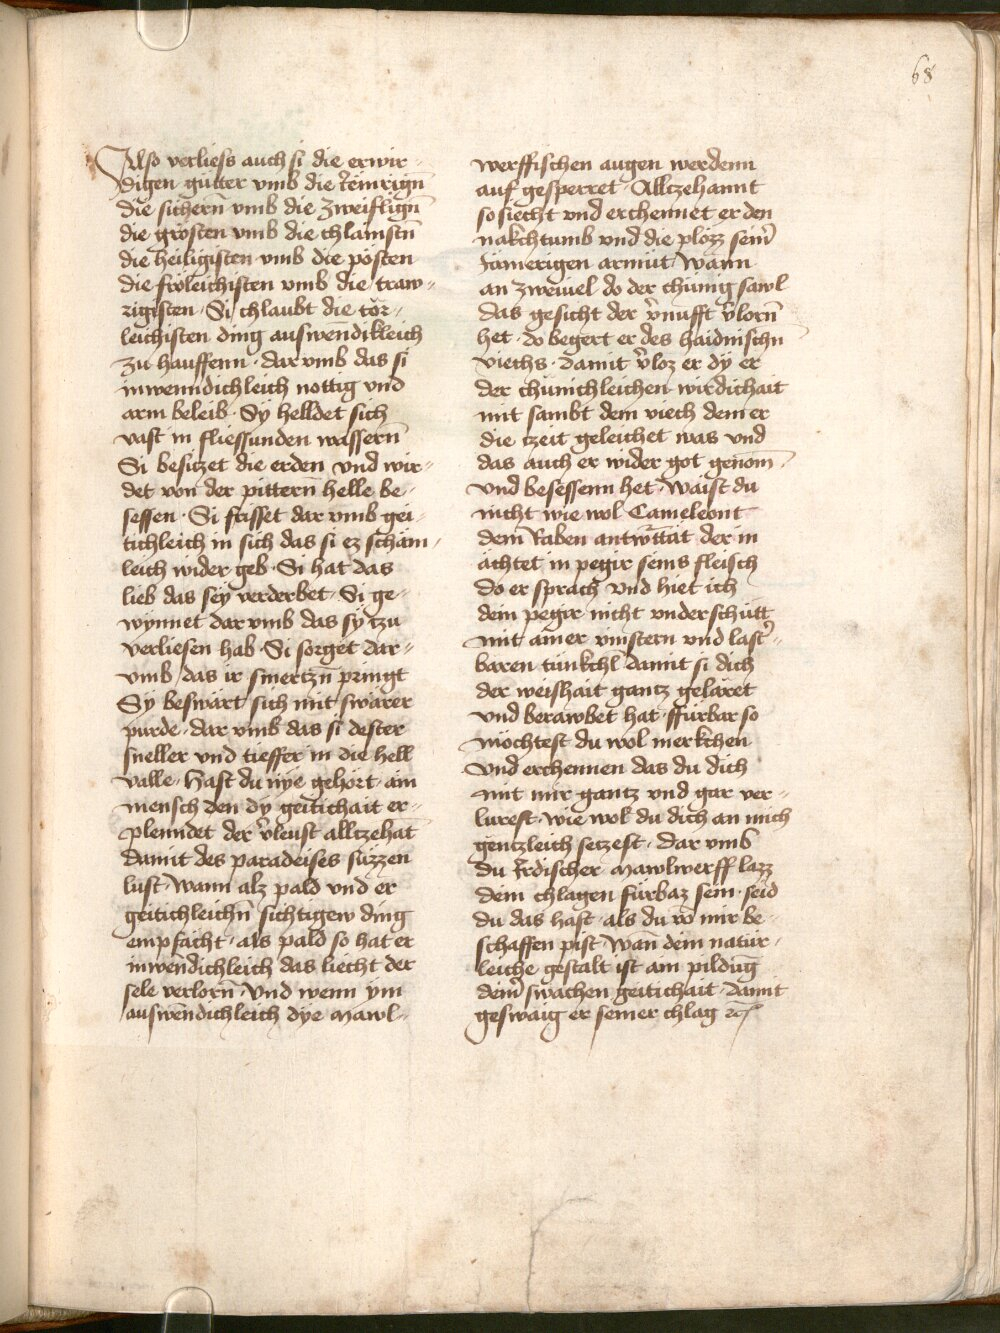 68
Also verliess auch si die erwir-
digen gütter vmb die
die sichern̄ vmb die zweiflign̄
die grösten vmb die chlainstn̄
die heiligisten vmb die pösten
die fröleichisten vmb die traw-
rigisten · Si chlaubt die tör-
leichisten ding auswendikleich
zu hauffenn · dar vmb das si
inwenndichleich nottig vnd
arm beleib · Sy helldet sich
vast in fliessunden wassern̄
Si besitzet die erden vnd wir-
det von der pittern̄ helle be-
sessen · Si frisset dar vmb gei-
tichleich in sich das si ez schäm-
leich wider geb · Si hat das
lieb das sey verderbet · Si ge-
wynnet dar vmb das sy tzu
verliesen hab · Si sorget dar-
vmb das ir smertzn̄ pringt
Sy beswärt sich mit swärer
purde · dar vmb das si dester
sneller vnd tieffer in die hell
valle · Hast du nye gehört · ain
mensch den dy geitichait er-
plenndet der v̉leust alltzehāt
damit des paradeises süzzen
lust · Wann alz pald vnd er
geitichleichn̄ sichtigew ding
empfächt · als pald so hat er
inwēdichleich das liecht der
sele verlorn̄ Vnd wenn ym
auswēdichleich dye mawl-
werffischen augen werdenn
auf gesperret · Alltzehannt
so siecht vnd erchennet er den
nakchtumb vnd die plözz sein̉
Jämerigen armüt · Wann
an zweiuel do der chünig sawl
das gesicht der v̉nufft v̉lorn̄
het · do begert er des haidnischn̄
viechs · damit v̉loz er dy er
der chünichleichen wirdichait
mit sambt dem viech dem er
die tzeit geleichet was vnd
das auch er wider got genom̄
vnd besessenn het · Waist du
nicht wie wol Cameleont
dem Raben der in
ächtet in pegir seins fleisch
do er sprach Vnd hiet ich
dein pegir nicht vnderschütt
mit ainer vinstern vnd last̉-
baren tünkchl damit si dich
der weishait gantz geläret
vnd berawbet hat · ffürbar so
möchtest du wol merkchen
vnd erchennen das du dich
mit mir gantz vnd gar ver-
lurest wie wol du dich an mich
gëntzleich setzest · Dar vmb
du Irdischer mawlwerff lazz
dein chlagen fürbaz sein · seid
du das hast · als du vō mir be-
schaffen pist · Wan̄ dein natür-
leiche gestalt ist ain pildūg
dein̉ swachen geitichait · Damit
geswaig er seiner chlag